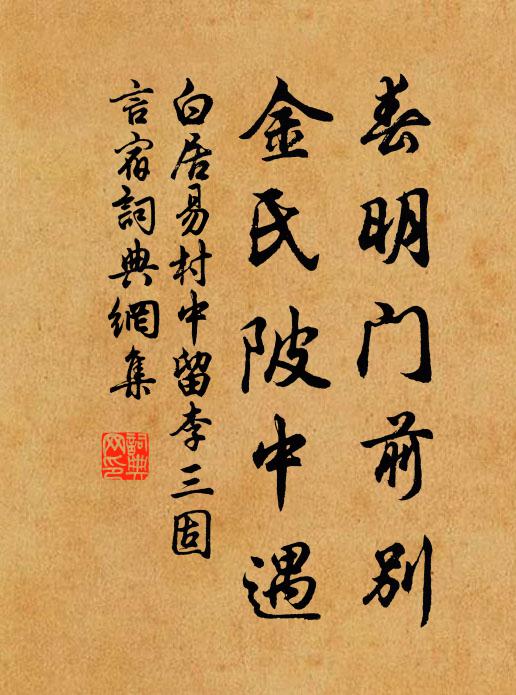 春明门前别
金氏陂中遇
白居易村中留李三固
言宿詞典網集
詞典
网印